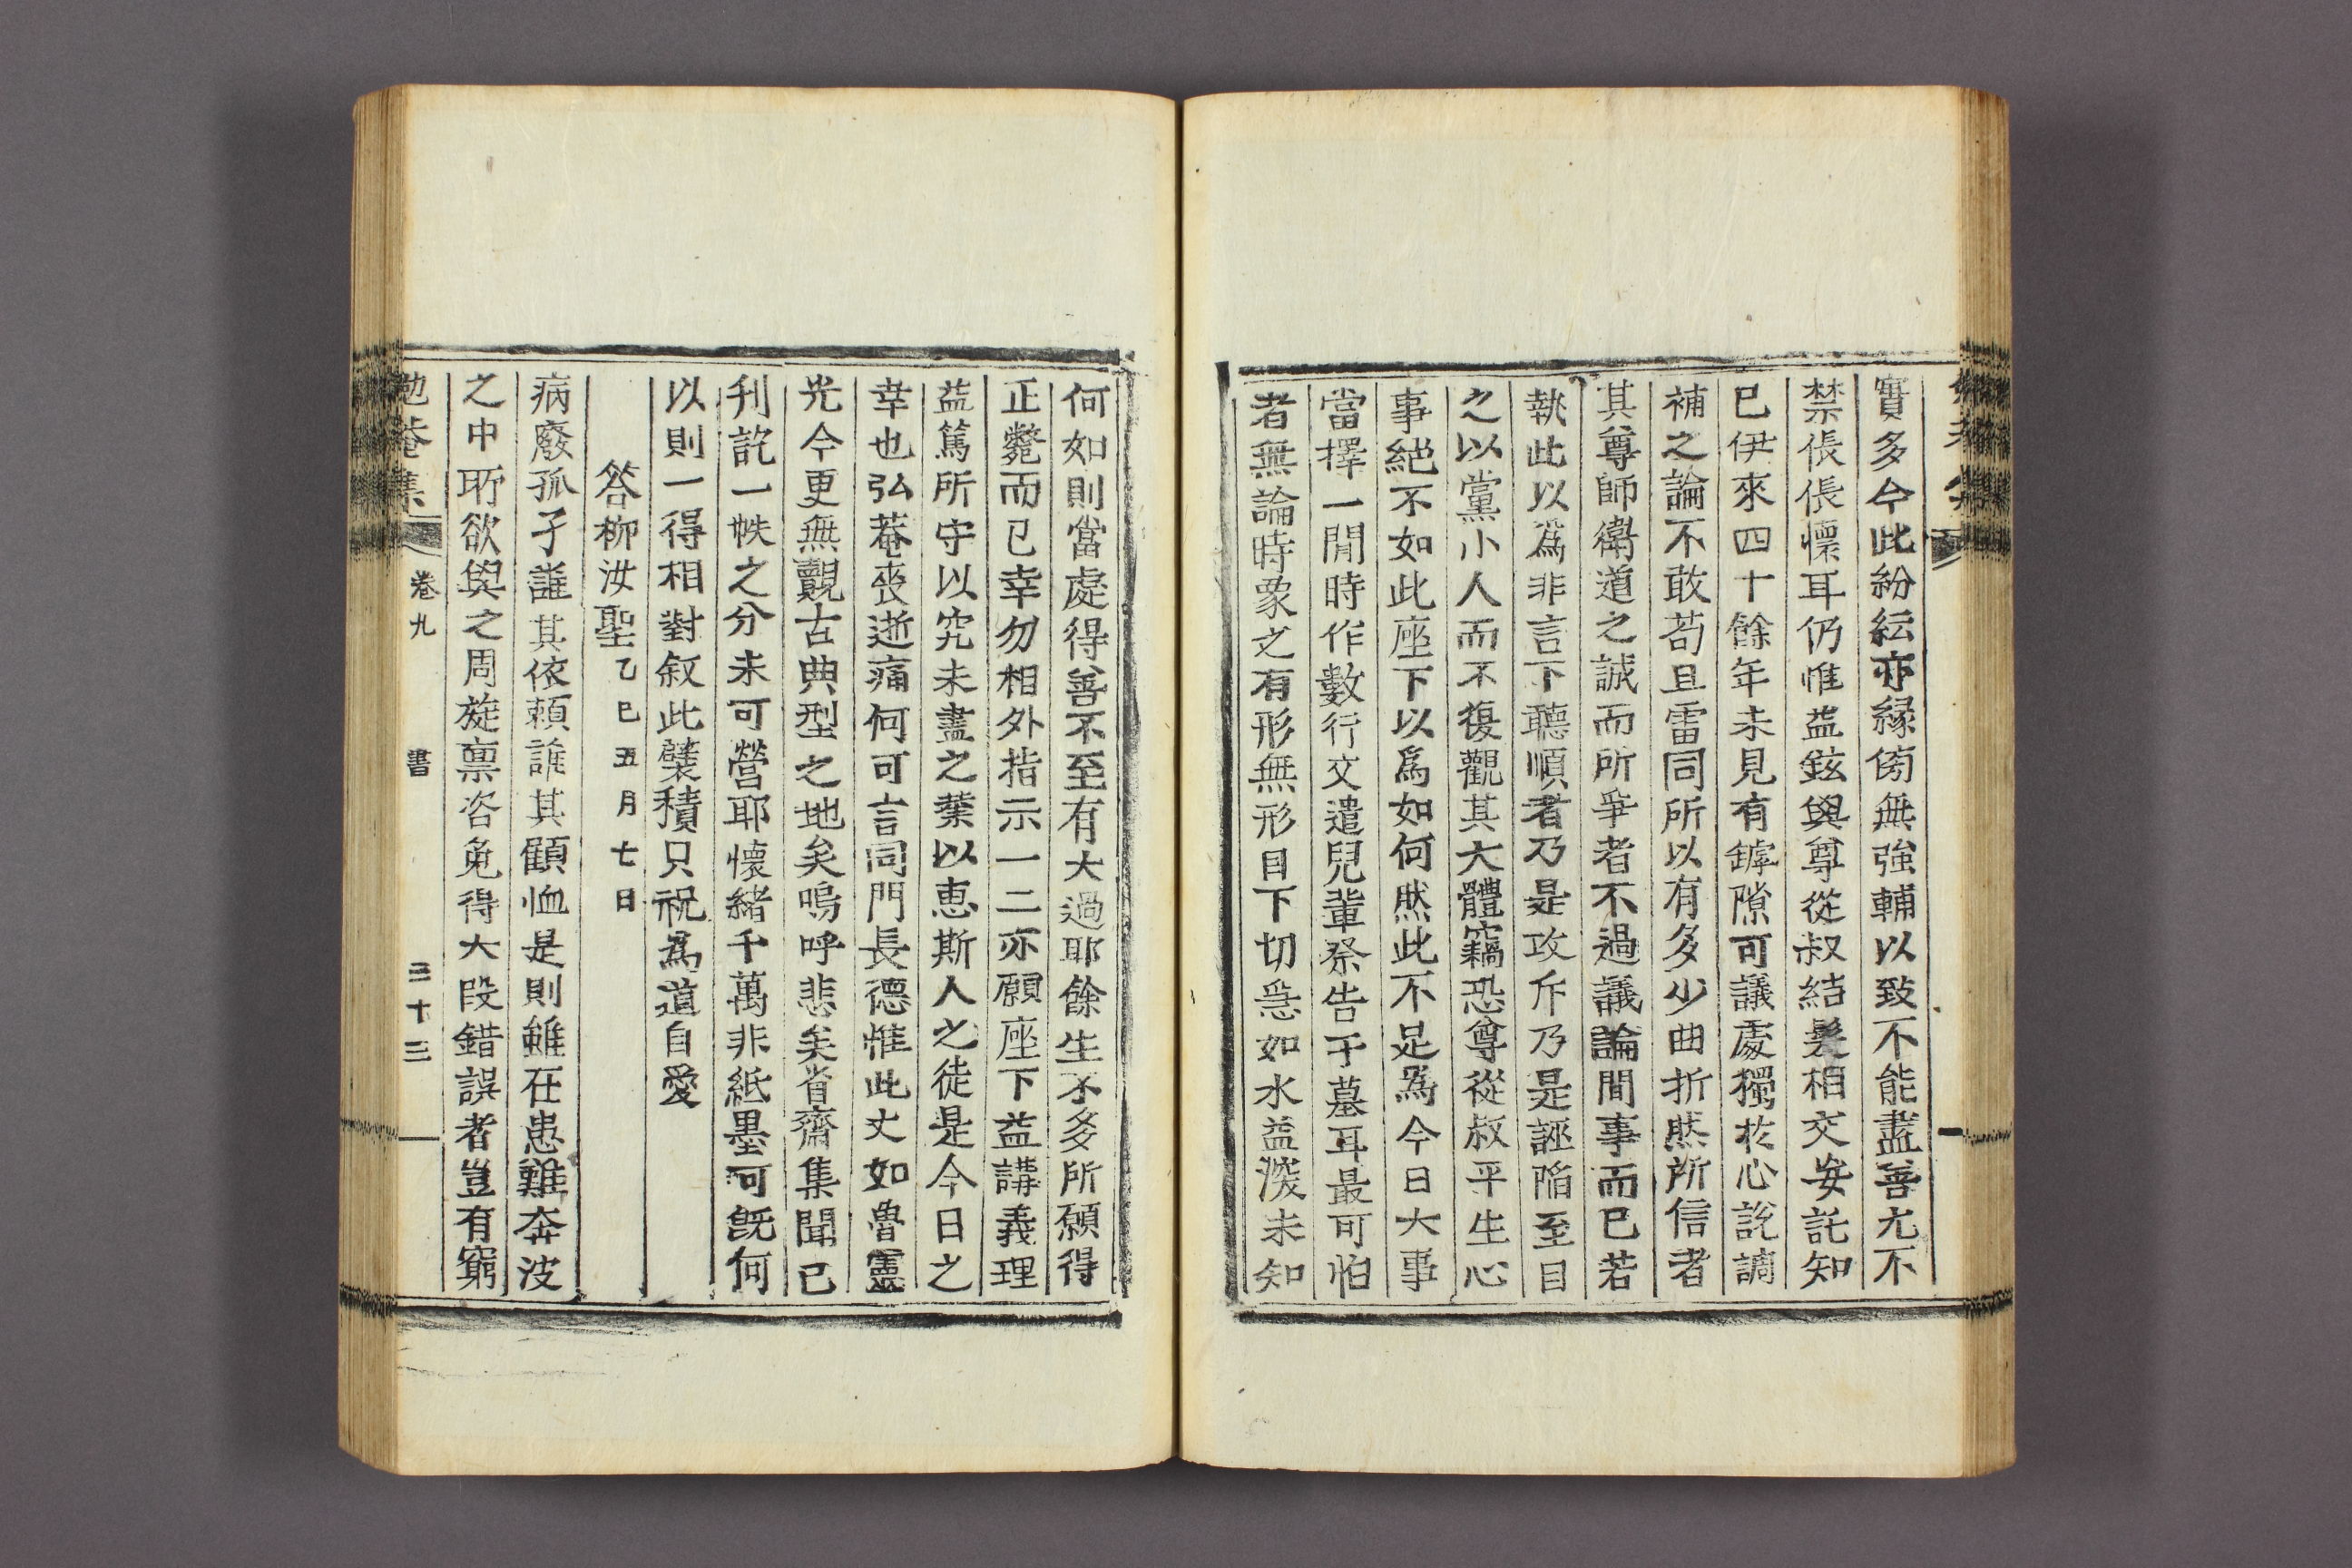 實多今此紛紜亦緣傍無強輔以致不能盡善尤不
禁倀倀懷耳仍惟益鉉與尊從叔結髮相交妄託知
已伊來四十餘年未見有罅隙可議處獨於心說謫
補之論不敢苟且雷同所以有多少曲折然所信者
其尊師衛道之誠而所爭者不過議論間事而已若
執此以爲非言下聽順者乃是攻斥乃是誣陷至目
之以黨小人而不復觀其大體竊恐尊從叔平生心
事絕不如此座下以爲如何然此不足爲今日大事
當擇一閒時作數行文遣兒輩祭告于墓耳最可怕
者無論時象之有形無形目下切急如水益深未知
何如則當處得善不至有大過耶餘生不多所願得
正斃而已幸勿相外指示一二亦願座下益講義理
益篤所守以究未盡之業以惠斯人之徒是今日之
幸也弘菴喪逝痛何可言同門長德惟此丈如魯靈
光今更無覿古典型之地矣嗚呼悲矣省齋集聞已
刊訖一帙之分未可營耶懷緖千萬非紙墨可旣何
以則一得相對叙此襞積只祝爲道自愛
答柳汝聖乙巳五月七日
病廢孤孑誰其依賴誰其顧恤是則雖在患難奔波
之中所欲與之周旋稟咨免得大段錯誤者豈有窮
勉菴集 卷九 書 三十三